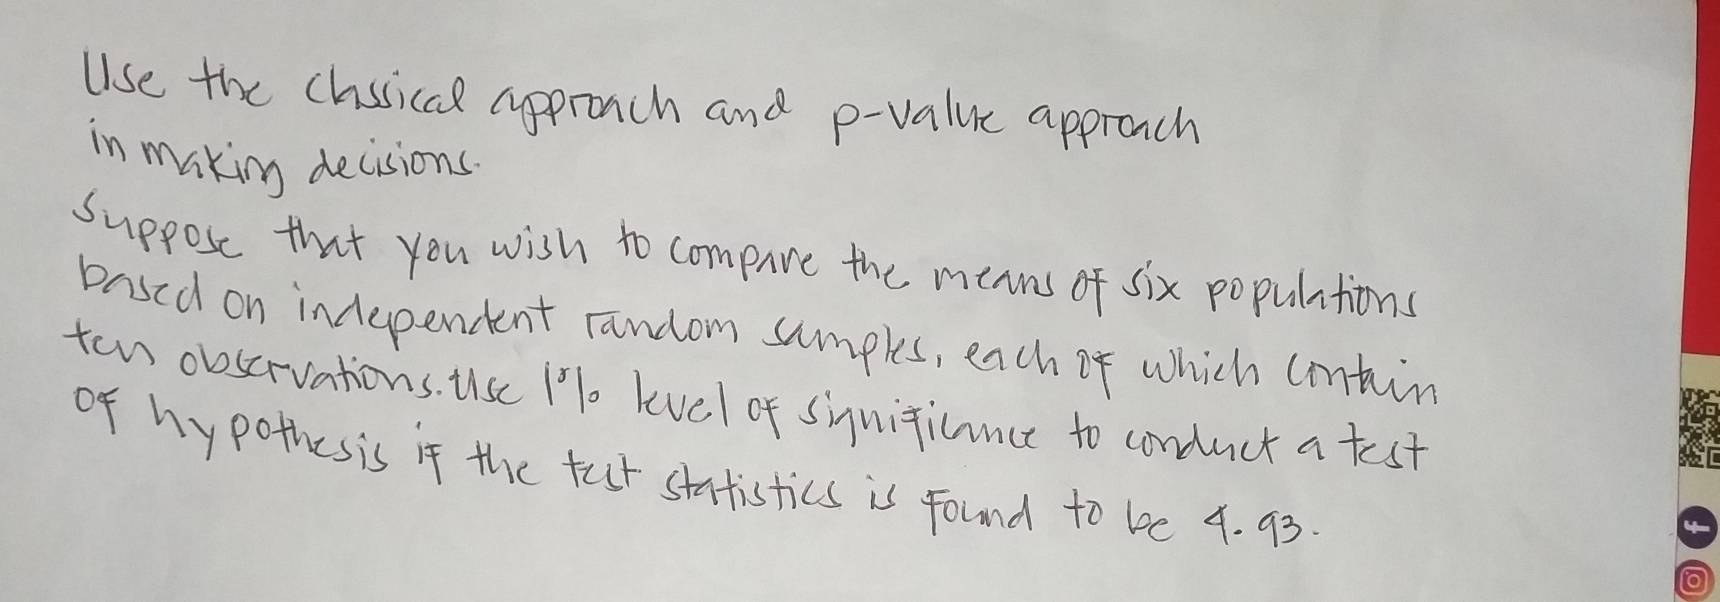 Use the classical approach and p-value approach
in making decisions.
Suppose that you wish to compare the means of six populations
based on independent random samples, each of which contain
ten observations. Use 1% level of significance to conduct a test
of hypothesis if the test statistics is found to be 4.93.